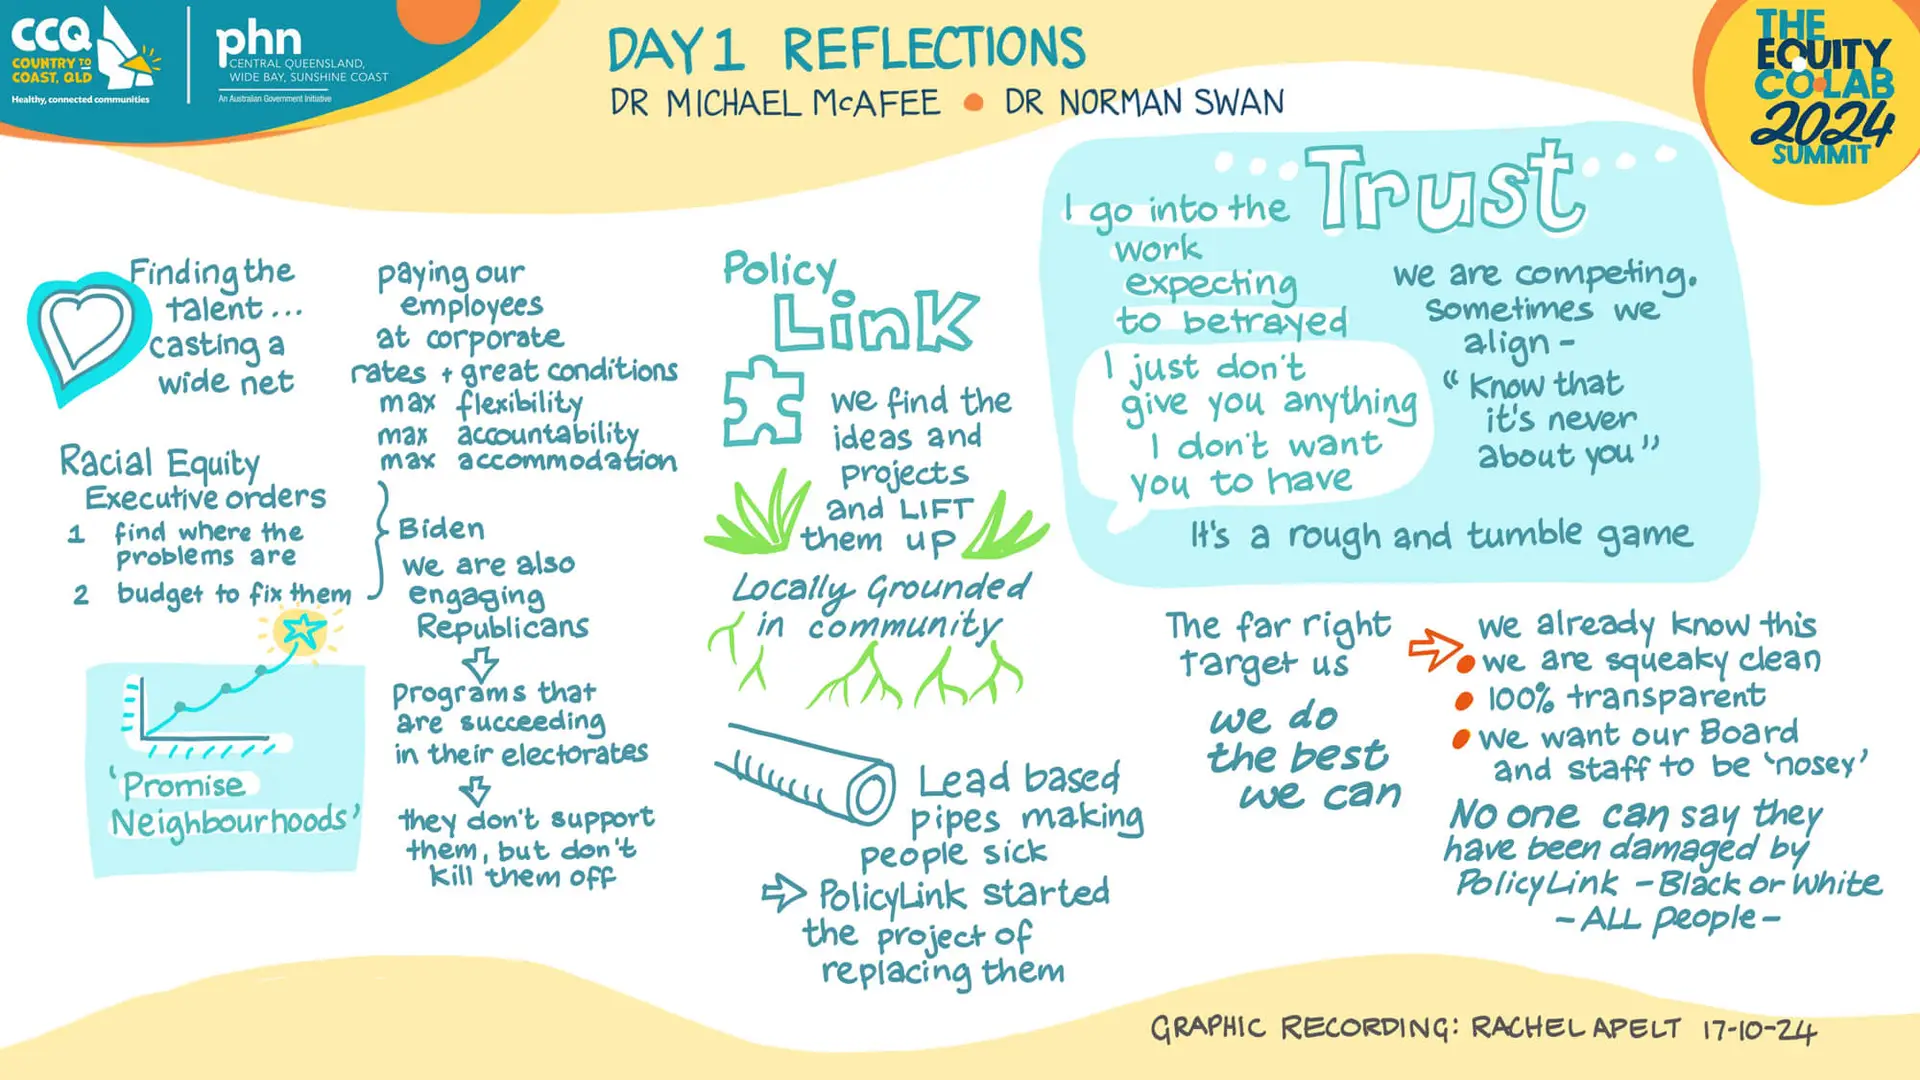 CCQ
COUNTRY TO
COAST, QLD
Healthy, connected communities
phn
CENTRAL QUEENSLAND,
WIDE BAY, SUNSHINE COAST
An Australian Government Initiative
DAY 1 REFLECTIONS
DR MICHAEL McAFEE • DR NORMAN SWAN
THE
EQUITY
COLAB
2024
SUMMIT
Finding the
talent...
casting a
wide net
paying our
employees
at corporate
rates + great conditions
max flexibility
max accountability
max accommodation
Racial Equity
Executive orders
1 find where the
problems are
2 budget to fix them
Biden
we are also
engaging
Republicans
programs that
are succeeding
in their electorates
they don't support
them, but don't
kill them off
'Promise
Neighbourhoods'
Policy
Link
we find the
ideas and
projects
and LIFT
them up
Locally Grounded
in community
Lead based
pipes making
people sick
PolicyLink started
the project of
replacing them
Trust
I go into the
work
expecting
to betrayed
I just don't
give you anything
I don't want
you to have
we are competing.
Sometimes we
align -
"know that
it's never
about you"
It's a rough and tumble game
The far right
target us
we do
the best
we can
we already know this
• we are squeaky clean
• 100% transparent
• we want our Board
and staff to be 'nosey'
No one can say they
have been damaged by
PolicyLink - Black or White
- ALL people -
GRAPHIC RECORDING: RACHEL APELT 17-10-24